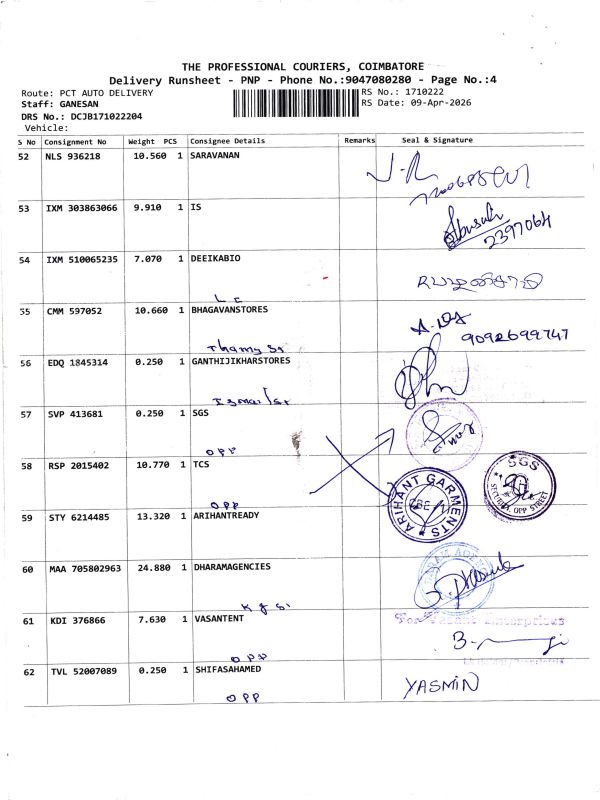 THE PROFESSIONAL COURIERS, COIMBATORE
Delivery Runsheet - PNP - Phone No.:9047080280 - Page No.:4
Route: PCT AUTO DELIVERY
RS No.: 1710222
Staff: GANESAN
RS Date: 09-Apr-2026
DRS No.: DCJB171022204
Vehicle:
S No Consignment No Weight PCS Consignee Details Remarks Seal & Signature
52 NLS 936218 10.560 1 SARAVANAN
53 IXM 303863066 9.910 1 IS
2397064
54 IXM 510065235 7.070 1 DEEIKABIO
55 CMM 597052 10.660 1 BHAGAVANSTORES
9092699747
56 EDQ 1845314 0.250 1 GANTHIJIKHARSTORES
57 SVP 413681 0.250 1 SGS
OPP
58 RSP 2015402 10.770 1 TCS
SGS
SECURITY, OPP STREET
OPP
ARIHANT GARMENTS
59 STY 6214485 13.320 1 ARIHANTREADY
60 MAA 705802963 24.880 1 DHARAMAGENCIES
61 KDI 376866 7.630 1 VASANTENT
For Vasant Enterprises
OPP
62 TVL 52007089 0.250 1 SHIFASAHAMED
YASMIN
OPP